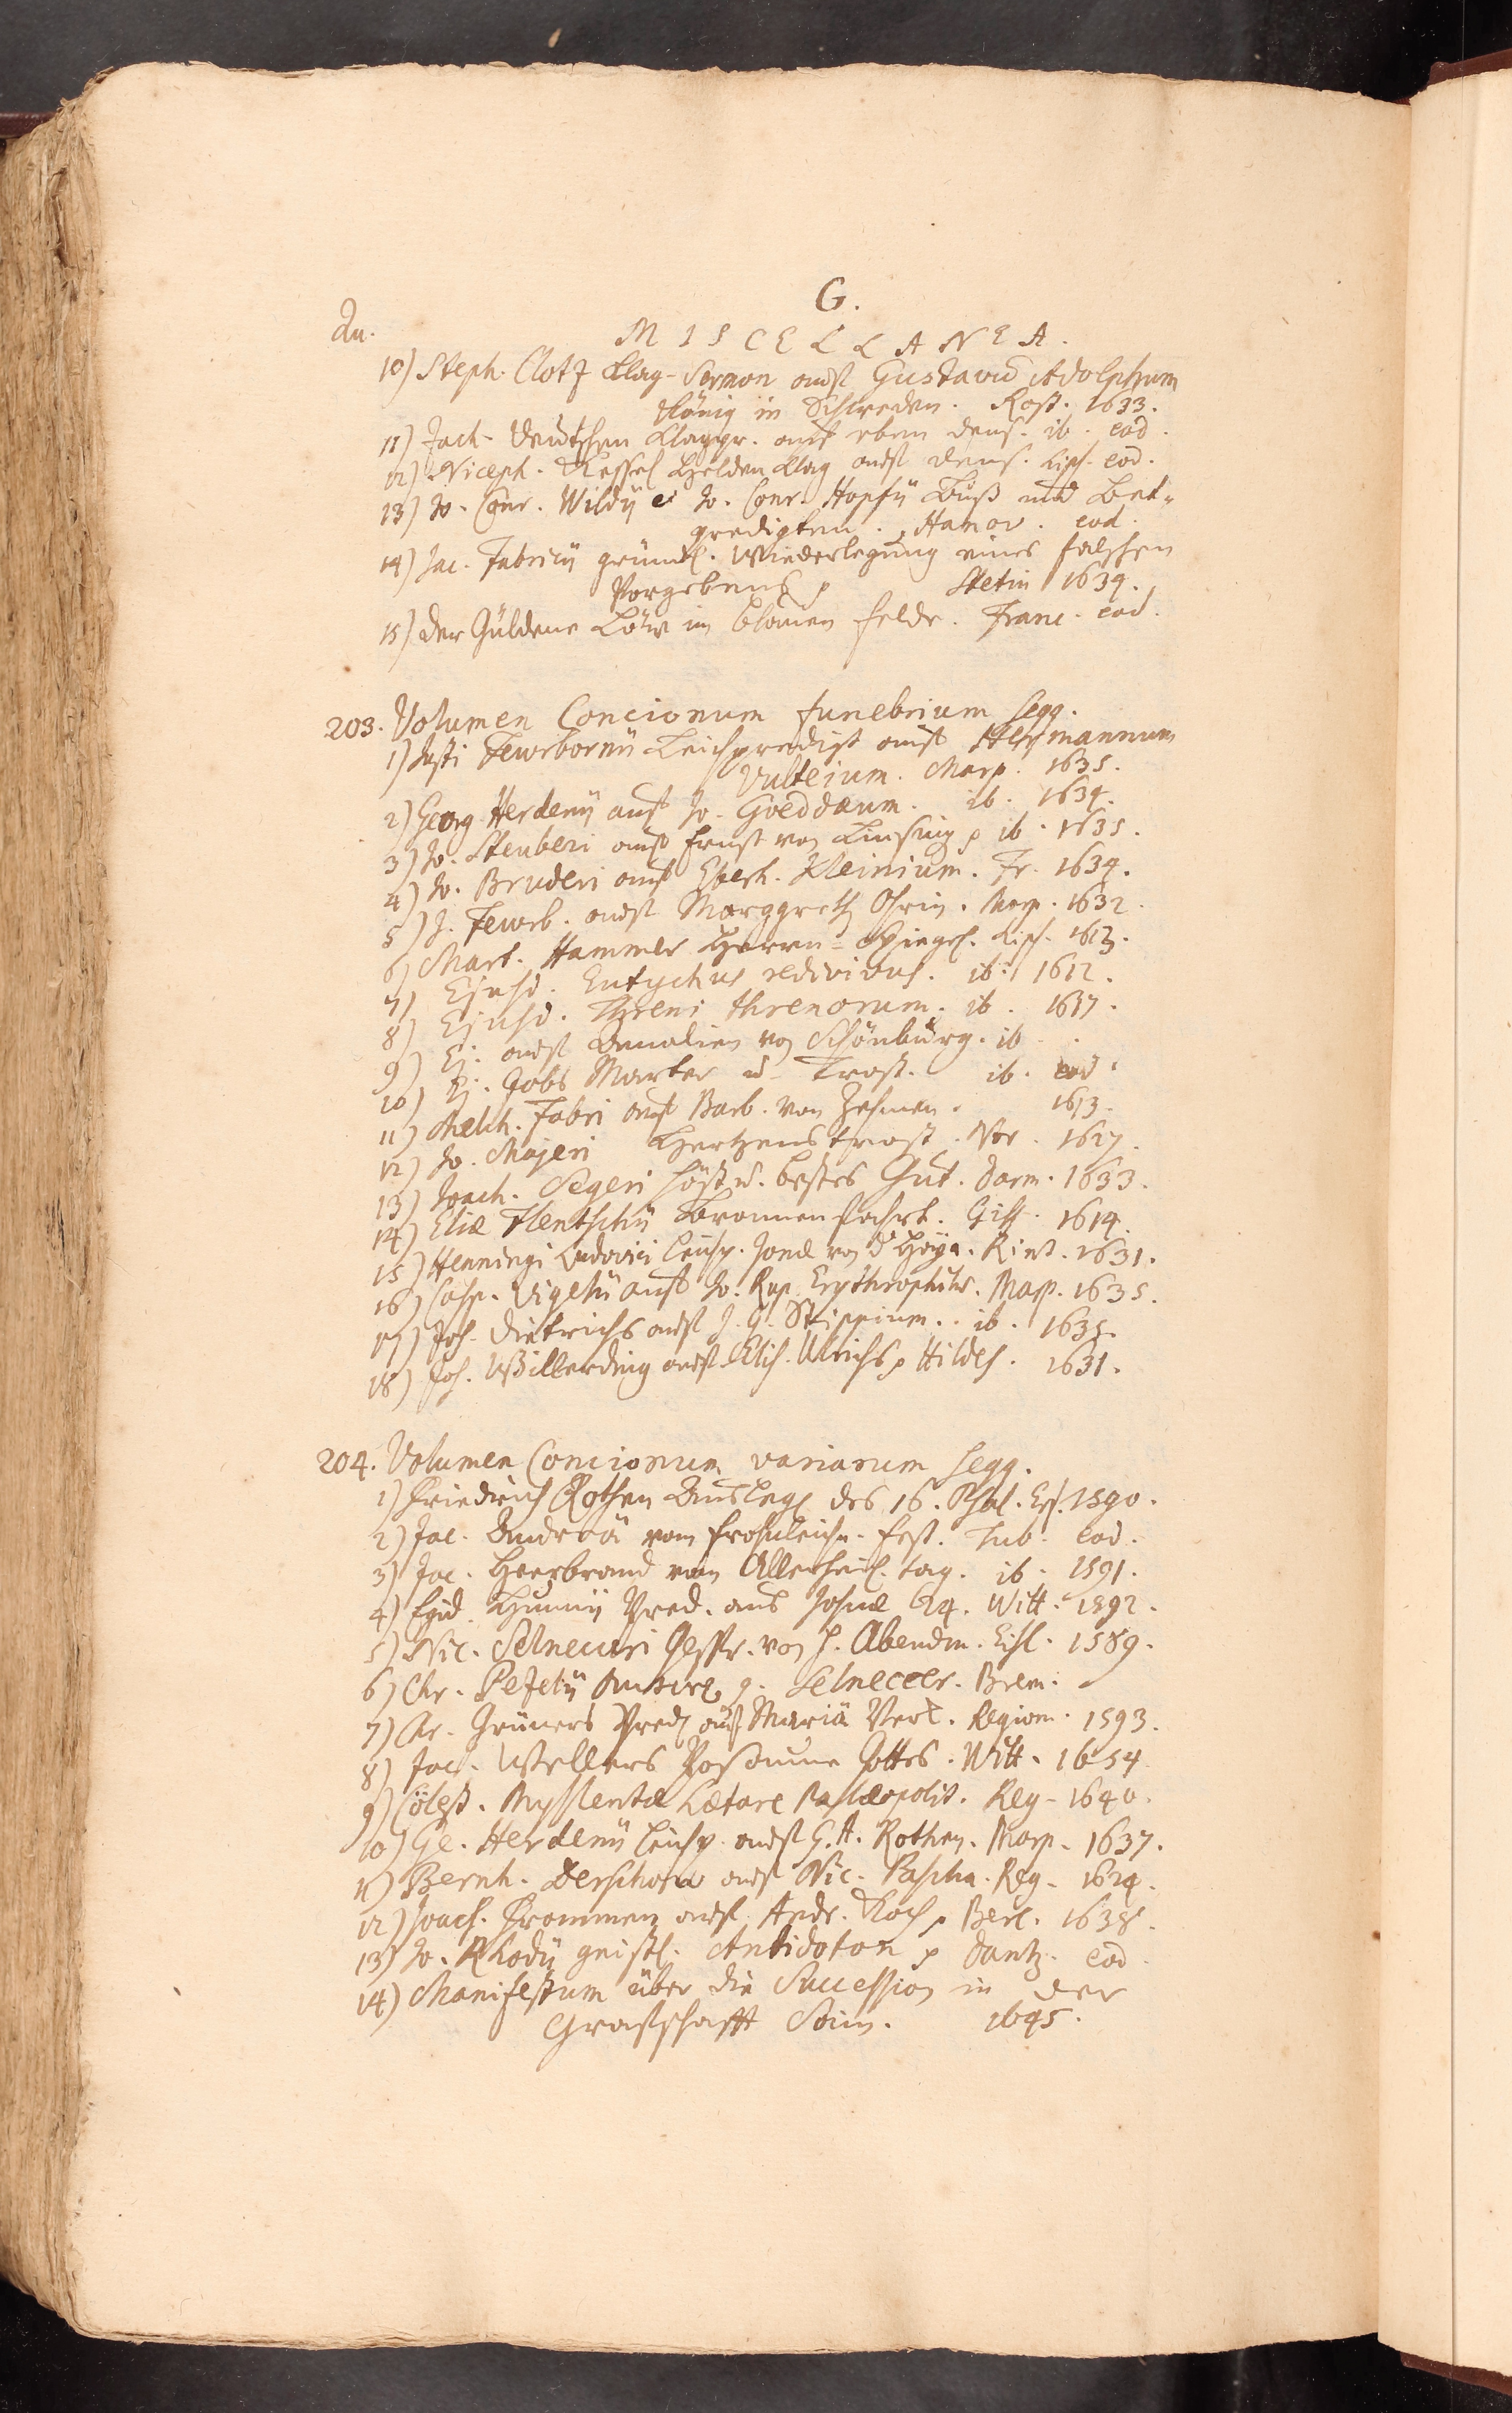 G.
Qu.
MISCELLANEA.
10) Steph. Clotz Klag-Sermon auff Gustavũ Adolphum
König in Schweden. Rost. 1633.
11) Zach. Deutschen Klagpr. auff eben dens. ib. eod.
12) Niceph. Kessel Heldenklag auff dens. Lips. eod.
13) Jo. Conr. Wildii et Jo. Conr. Hopfii Buß und Bet-
predigten. Hanov. eod.
14) Jac. Fabricii gründl. Wiederlegung eines falschen
Vorgebens p Stetin 1634.
15) Der Güldene Löw im blawen felde. Franc. eod.
203. Volumen Concionum funebrium seqq.
1) Justi Fewrbornii Leichpredigt auff Hermannum
Vulteium. Marp. 1635.
2) Georg Herdenii auff Jo. Goeddaeum. ib. 1634.
3) Jo. Steuberi auff Ernst von Linsing p ib. 1635.
4) Jo. Bruderi auff Eberh. Kleinium. Fr. 1634.
5) J. Fewrb. auff Marggreth Ohrin. Marp. 1632.
6) Mart. Hammer Herrn-Spiegel. Lips. 1613.
7) Ejusd. Eutychus redivivus. ib. 1612.
8) Ejusd. Threni threnorum. ib. 1617.
9) Ej. auff Amalien von Schönburg. ib.
10) Ej. Jobs Marter u. Trost. ib. eod.
11) Melch. Fabri auff Barb. von Zehmen. 1613.
12) Jo. Majeri Hertzenstrost. Nor. 1627.
13) Joach. Segeri höchst. bestes Gut. Darm. 1633.
14) Eliæ Hentschii Bronnenfahrt. Giss. 1614.
15) Henningi Ludovici Leichp. Jonæ von d' Hoya. Rint. 1631.
16) Casp. Vigelii auff Jo. Rup. Erythrophilus. Marp. 1635.
17) Joh. Dietrichs auff J. G. Strippium. ib. 1635.
18) Joh. Willerding auff Elis. Ulrichs p Hildes. 1631.
204. Volumen Concionum variarum seqq.
1) Friedrich Rothen Ausleg. des 16. Psal. Erf. 1590.
2) Jac. Andreä vom Frohnleichn. fest. Tub. eod.
3) Jac. Heerbrand vom Allerheil. tag. ib. 1591.
4) Egid. Hunnii Pred. aus Josuæ 24. Witt. 1592.
5) Nic. Selnecceri Gespr. von H. Abendm. Eisl. 1589.
6) Chr. Pezelii Antwort g. Selneccer. Brem.
7) Chr. Grüners Pred. auff Mariä Verk. Regiom. 1593.
8) Jac. Wellers Posaune Gottes. Witt. 1654
9) Cölest. Myslentæ Lætare Palæopolit. Reg. 1640.
10) Ge. Herdenii Leichp. auff G. A. Rothen. Marp. 1637.
11) Bernh. Derschow auff Nic. Pascha. Reg. 1624.
12) Joach. Frommen auff Andr. Koch p Berl. 1638.
13) Jo. Rhodii geistl. Antidoton p Dantz. eod.
14) Manifestum über die Succession in der
Graffschafft Sain. 1695.